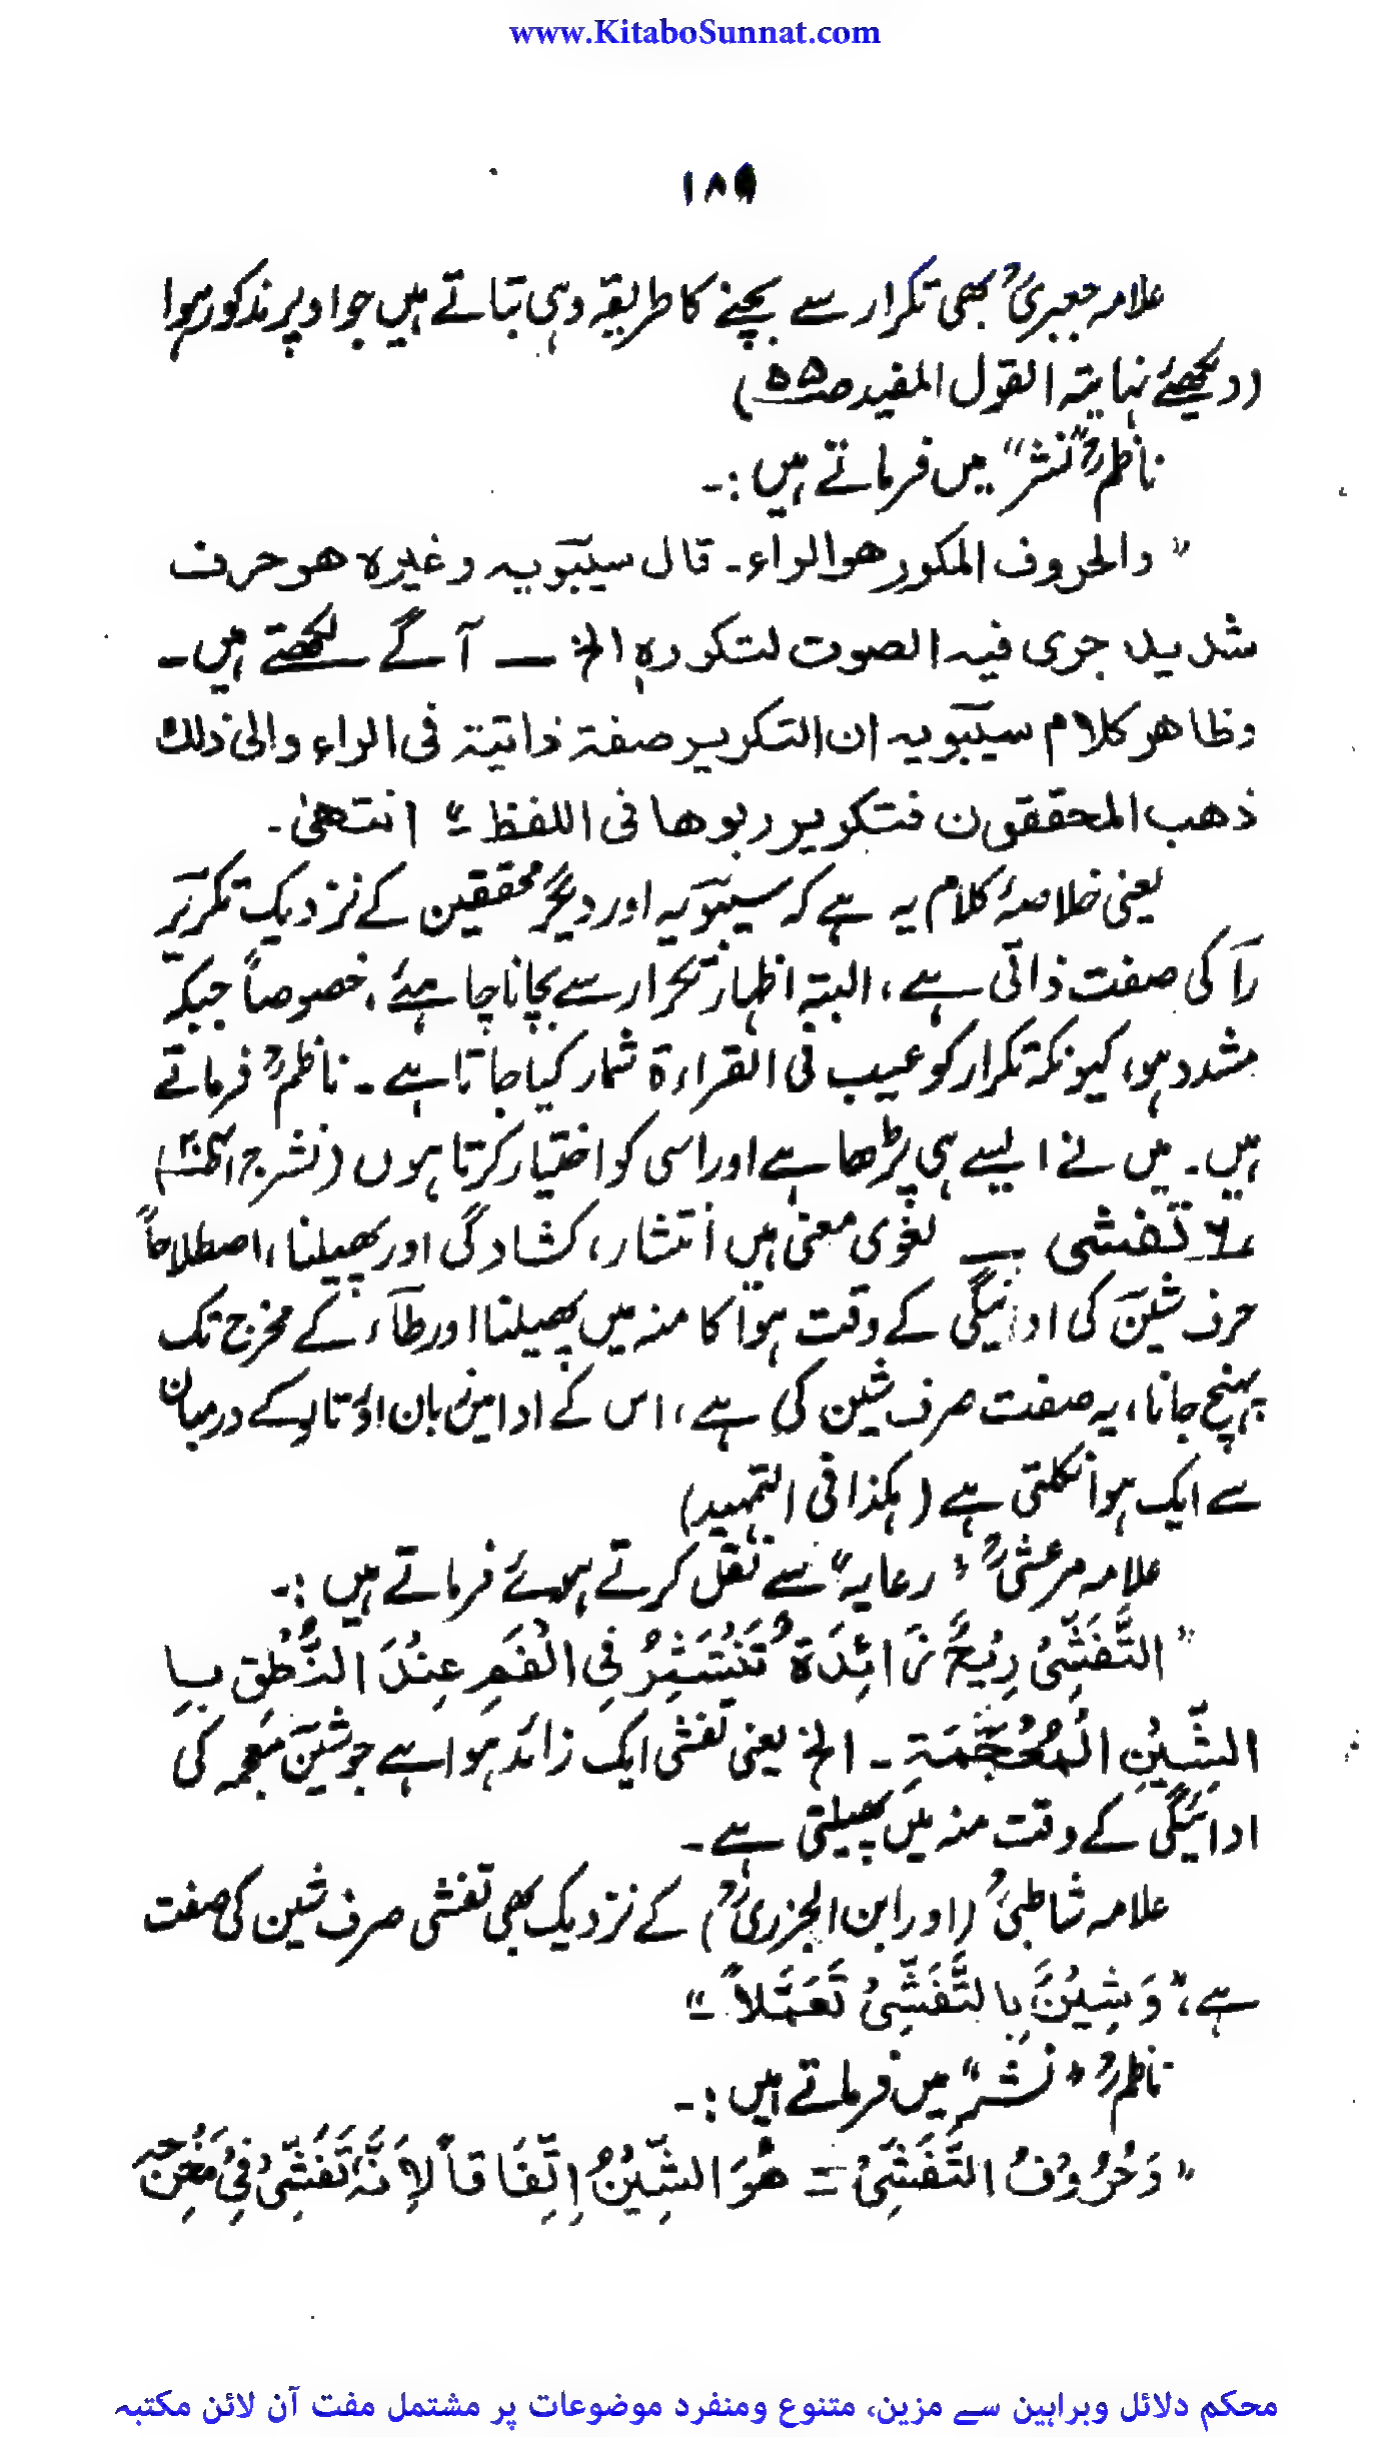 www.KitaboSunnat.com
علامہ جعبریؒ بھی تکرار سے بچنے کا طریقہ وہی بتاتے ہیں جو اوپر مذکور ہوا
(دیکھئے نہایتہ القول المفید ص۵۵)
ناظمؒ ”نشر“ میں فرماتے ہیں :۔
” والحروف المکور ھو الراء۔ قال سیبَویہ وغیرہ ھو حرف
شدید جری فیہ الصوت لتکررہٖ الخ — آگے لکھتے ہیں۔
وظاھر کلام سیبَویہ ان التکریر صفۃ ذاتیۃ فی الراء والی ذلک
ذھب المحققون فتکریر ربوھا فی اللفظ ۔“ انتھیٰ۔
یعنی خلاصۂ کلام یہ ہے کہ سیبَویہ اور دیگر محققین کے نزدیک تکریر
رآ کی صفت ذاتی ہے، البتہ اظہارِ تکرار سے بچانا چاہئے، خصوصاً جبکہ
مشدد ہو، کیونکہ تکرار کو عیب فی القراءۃ شمار کیا جاتا ہے۔ ناظمؒ فرماتے
ہیں۔ میں نے ایسے ہی پڑھا ہے اور اسی کو اختیار کرتا ہوں (نشر ج۱
؍۶ تفشی — لغوی معنی ہیں انتشار، کشادگی اور پھیلنا، اصطلاحاً
حرف شینَ کی ادائیگی کے وقت ہوا کا منہ میں پھیلنا اور طآء کے مخرج تک
پہنچ جانا، یہ صفت صرف شین کی ہے، اس کے ادا میں زبان اور تالو کے درمیان
سے ایک ہوا نکلتی ہے (ہٰکذا فی التمہید)
علامہ مرعشیؒ ”رعایہ“ سے نقل کرتے ہوئے فرماتے ہیں :۔
” التَّفَشِّیُ رِیْحٌ زَائِدَۃٌ تَنْتَشِرُ فِی الْفَمِ عِنْدَ النُّطْقِ بِا
الشِّیْنِ الْمُعْجَمَۃِ۔ الخ یعنی تفشی ایک زائد ہوا ہے جو شینَ معجمہ کی
ادائیگی کے وقت منہ میں پھیلتی ہے۔
علامہ شاطبیؒ (اور ابن الجزریؒ) کے نزدیک بھی تفشی صرف شین کی صفت
ہے، ”وَشِیْنٌ بِالتَّفَشِّیْ تَعَمَّلاً ۔“
ناظمؒ ”نشر“ میں فرماتے ہیں :۔
” وَحُرُوْفُ التَّفَشِّیْ = ھُوَ الشِّیْنُ اِتِّفَاقاً لِاَنَّہٗ تَفَشّٰی فِیْ مَخْرَجِہٖ
محکم دلائل وبراہین سے مزین، متنوع ومنفرد موضوعات پر مشتمل مفت آن لائن مکتبہ